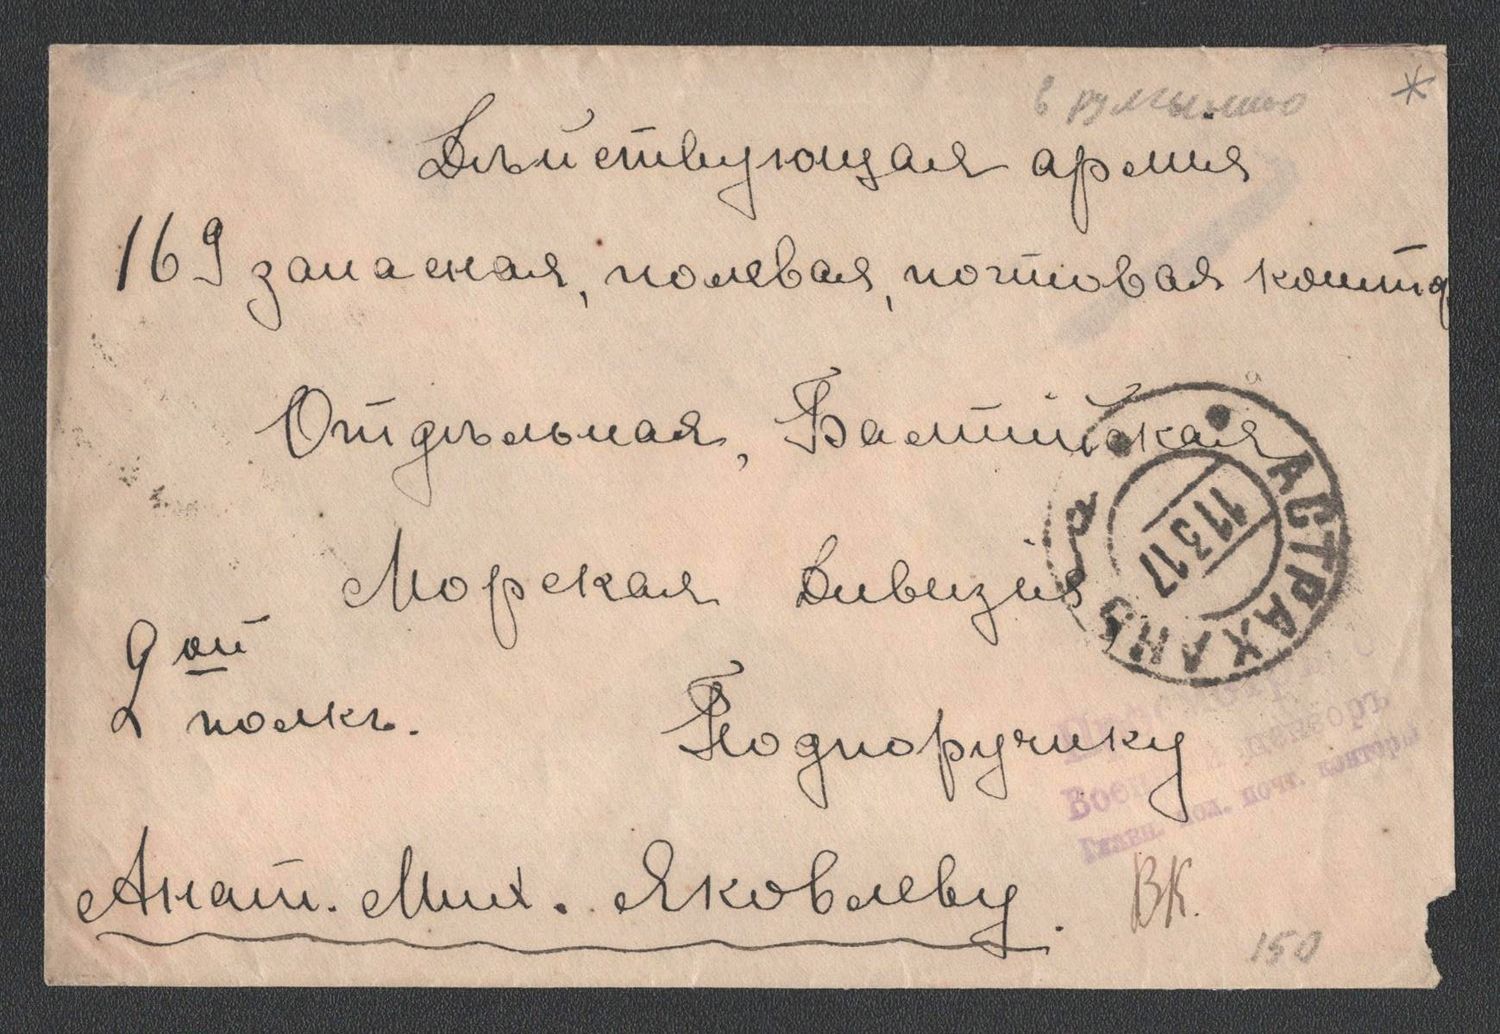 в румынию
Дѣйствующая армія
169 запасная, полевая, почтовая конт
Отдѣльная, Балтійская
Морская Дивизія,
2ой
полкъ.
Подпоручику
Анат. Мих. Яковлеву.
АСТРАХАНЬ
а
11 3 17
Просмотрѣно
Военный цензоръ
Главн. пол. почт. конторы
ВК.
150